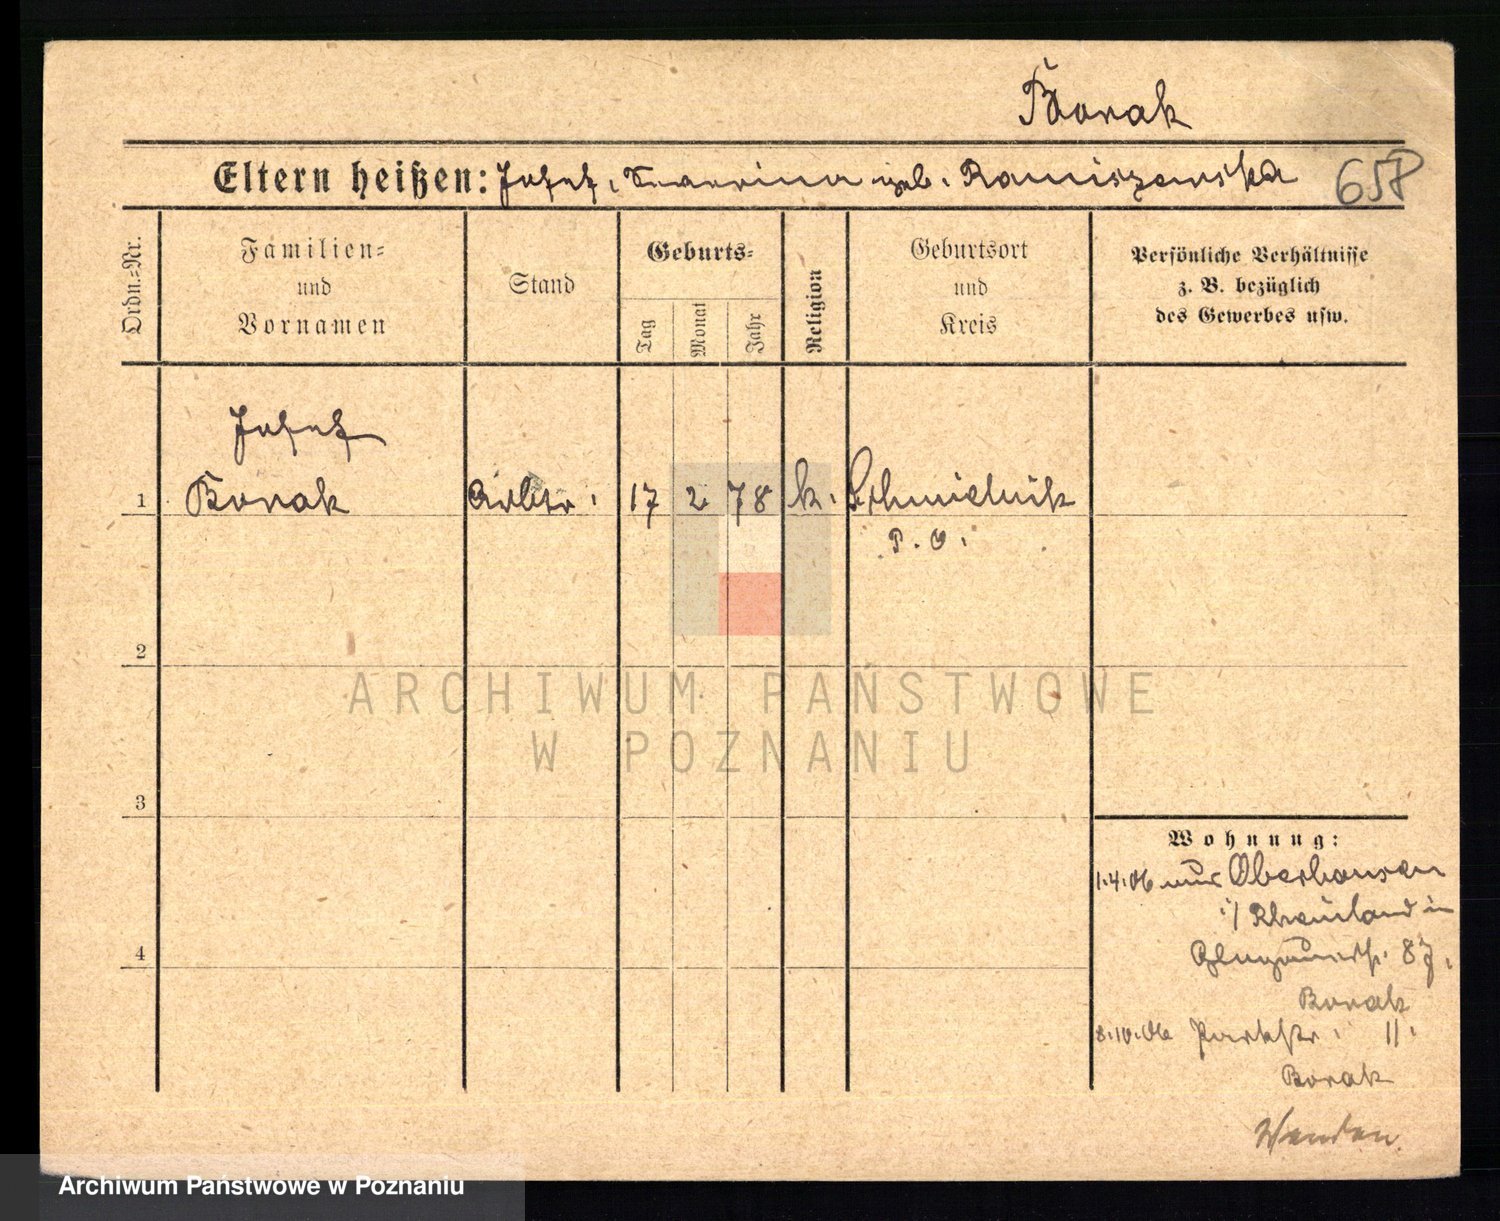 Borak
Eltern heißen: Josef, Severina geb. Romiszewska
658
Ordn.-Nr.
Familien-
und
Vornamen
Stand
Geburts-
Tag
Monat
Jahr
Religion
Geburtsort
und
Kreis
Persönliche Verhältnisse
z. B. bezüglich
des Gewerbes usw.
Josef
1 Borak Arbtr. 17 2 78 k. Schmielnik
P. O.
2
3
4
ARCHIWUM PAŃSTWOWE
W POZNANIU
Wohnung:
1.4.06 aus Oberhausen
i/ Rheinland in
87.
Borak
8.10.06 Parkstr. 11.
Borak
Wenden
Archiwum Państwowe w Poznaniu